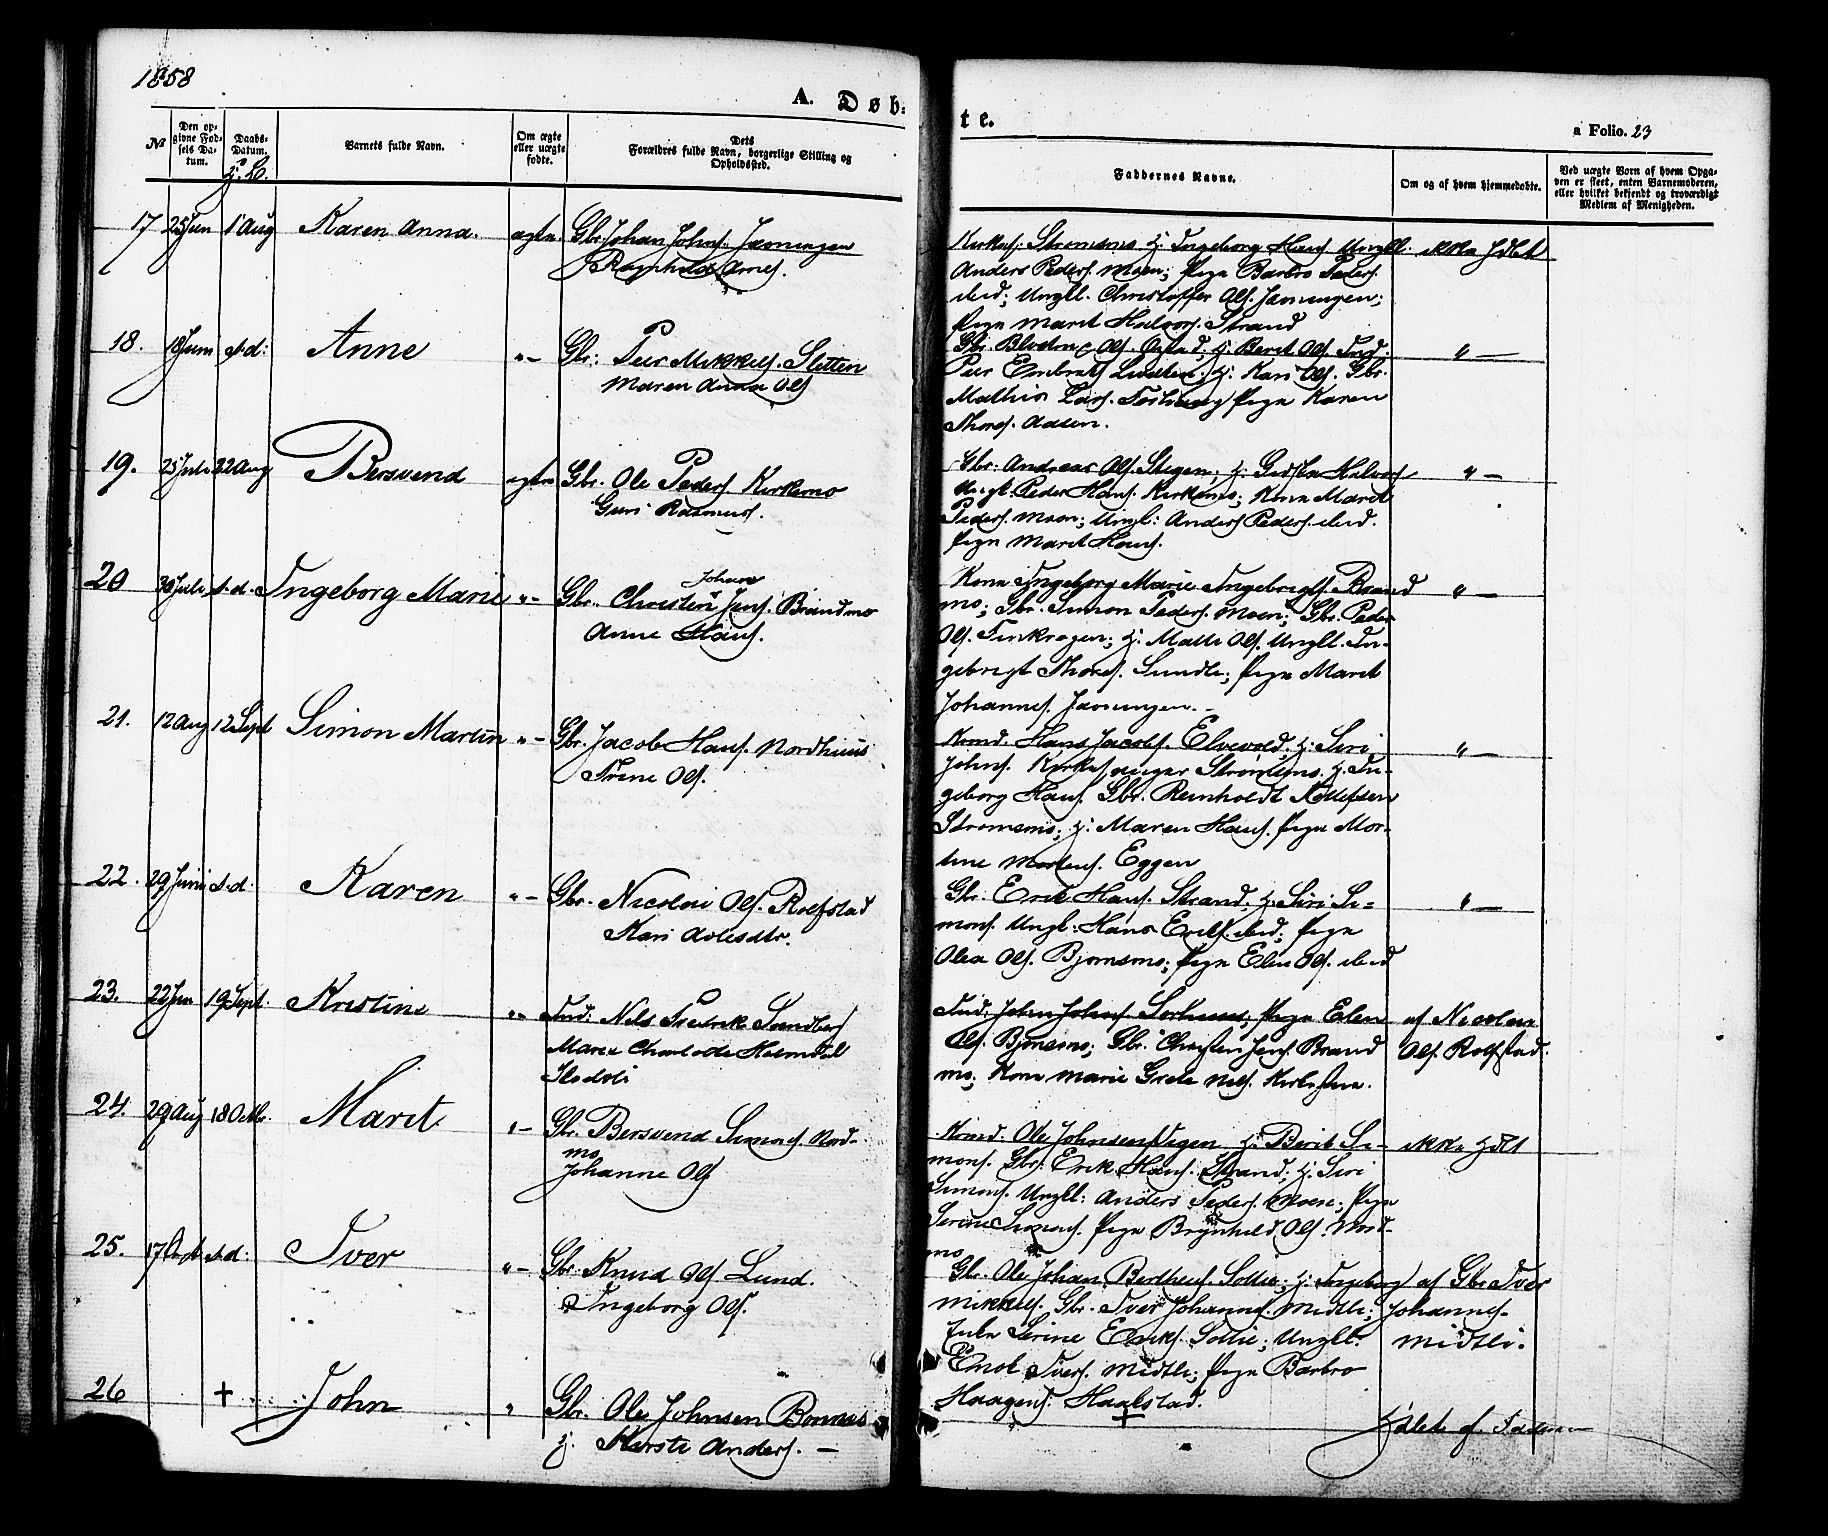 1858
A. Døb-
te.
a Folio. 23
№
Den op-
givne Fød-
sels Da-
tum.
Daabs-
Datum.
Barnets fulde Navn.
Om ægte
eller uægte
fødte.
Dets
Forældres fulde Navn, borgerlige Stilling og
Opholdssted.
Faddernes Navne.
Om og af hvem hjemmedøbte.
Ved uægte Børn af hvem Opga-
ven er skeet, enten Barnemoderen,
eller hvilket bekjendt og troværdigt
Medlem af Menigheden.
17 25 Jun 1 Aug Karen Anna. ægte Gbr. Johan Johns. Jæmungen
Ragnhild Arnes.
Kirkes. Strømsmo H. Ingeborg Hans. Ungkl. ikke hdbt
Anders Peders. Moen; Pige Barbro Peders.
ibid; Ungkl. Christoffer Ols. Jæmungen;
Pige Marit Halvors. Strand
18. 18 Juni s.d: Anne "— Gbr: Peer Mikkels. Sletten
Maren Anna Ols
Ols. H. Berit Ols.
Peer Embrets. H. Kari Ols. Gbr.
Mathis Lars. Pige Karen
Thores. Aasen.
"—
19. 25 Juli 22 Aug Bersvend ægte Gbr. Ole Peders. Kirkemo
Guri Rasmus.
Gbr: Andreas Ols. Stegen; H. Halvors
Ungk. Peder Hans. Kirkemo; Kone Marit
Peders. Moen; Ungk: Anders Peders. ibid.
Pige Marit Hans.
"—
20 30 Juli s.d. Ingeborg Marie "— Gbr. Christen Jens. Brandmo
Johan
Anne Hans.
Kone Ingeborg Marie Ingebrigts. Brand
mo; Gbr. Simon Peders. Moen; Gbr. Peder
Ols. Finkragen; H. Malli Ols. Ungkl. In-
gebrigt Thores. Sundli; Pige Marit
Johannes. Jæmungen.
"—
21. 12 Aug 12 Sept Simon Martin "— Gbr. Jacob Hans. Nordhuus
Trine Ols.
Hans Jacobs. Elvevold; H. Siri
Johns. Kirkesanger Strømsmo. H. In-
geborg Hans. Gbr. Reinholdt
Strømsmo; H. Maren Hans. Pige Mor-
tine Mortens. Eggen
"—
22. 29 Juni s.d. Karen "— Gbr. Nicolai Ols. Rolfstad
Kari
Gbr. Erik Hans. Strand; H. Siri Si-
mons. Ungk: Hans Eriks. ibid; Pige
Olea Ols. Bjørnsmo; Pige Elen Ols. ibid
"—
23. 22 Jun 19 Sept. Kristine "— Ind: Nils Fredrik Sundberg
Maria Charlotte
Ind: John Johns. Sørhuus; Pige Elen af Nicolai
Ols. Bjørnsmo; Gbr. Christen Jens. Brand Ols. Rolfstad.
mo; Kone Marie Grete Nils.
24. 29 Aug 18 Octbr. Marit "— Gbr. Bersvend Simons. Nord-
mo
Johanne Ols
Ole Johnsen H. Berit Si- ikke hdbt
mons. Gbr. Erik Hans. Strand; H. Siri
Simons. Ungkl: Anders Peders. Moen; Pige
Serine Simons. Pige Brynhild Ols. Nord-
mo
25. 17 s.d: Iver "— Gbr. Knud Ols Lund.
Ingeborg Ols.
Gbr. Ole Johan Berthens. Sollie; H. Ingeborg af Gbr. Iver
Mikkels. Gbr. Iver Johannes. Midtli; Johannes.
Serine Eriks. Sollie; Ungkl. Midtli.
Enok Ivers. Midtli; Pige Barbro
Haagens. Haalstad.
26 † John " Gbr. Ole Johnsen Bonnes
H. Kirsti Anders. —
†